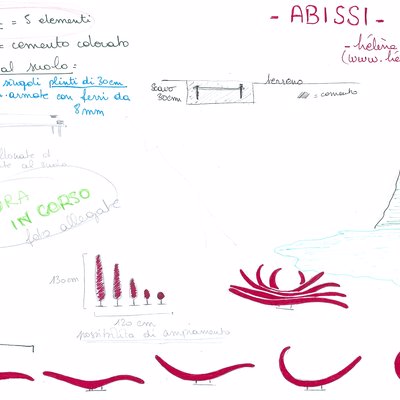 - ABISSI -
= 5 elementi
- hélèna
= cemento colorato
(www.hé
al suolo:
singoli plinti di 30cm
armate con ferri da
8mm
scavo
30cm
terreno
= cemento
al suolo
ORA
IN CORSO
foto allegate
130cm
120 cm
possibilità di ampliamento